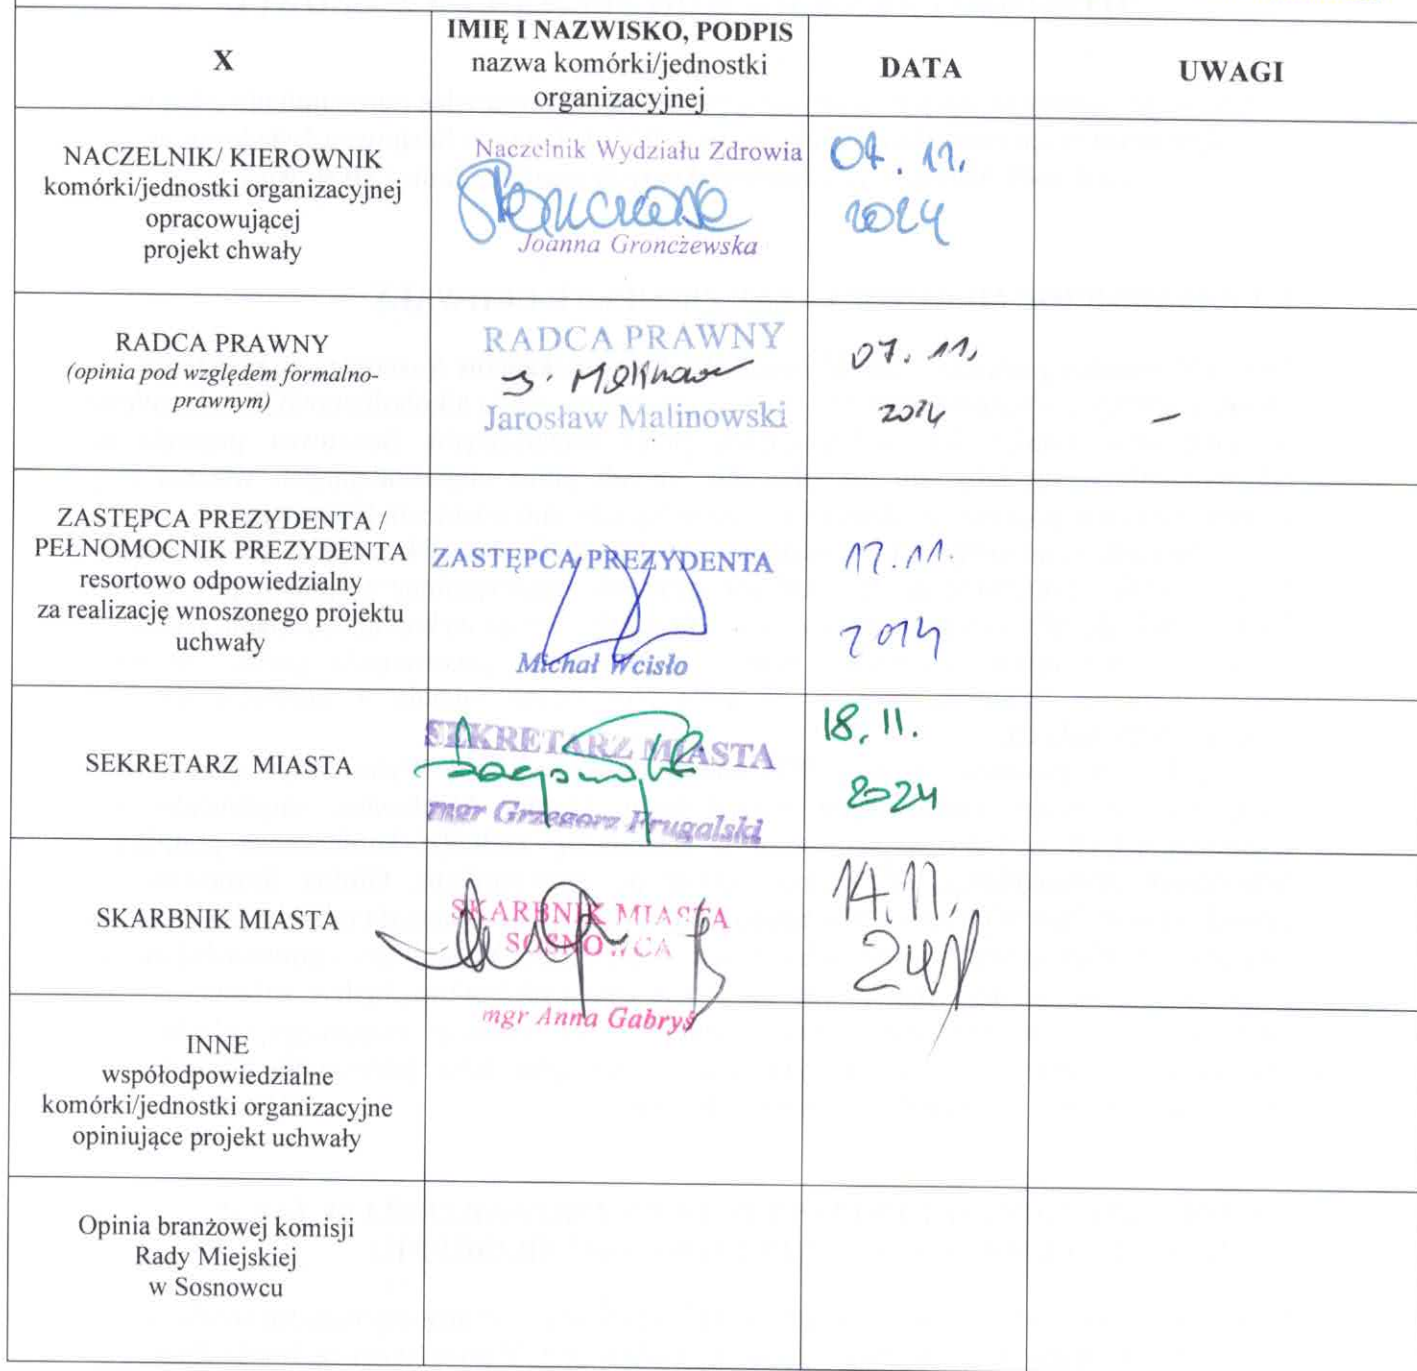 X
IMIĘ I NAZWISKO, PODPIS
nazwa komórki/jednostki
organizacyjnej
DATA
UWAGI
NACZELNIK/ KIEROWNIK
komórki/jednostki organizacyjnej
opracowującej
projekt chwały
Naczelnik Wydziału Zdrowia
Joanna Gronczewska
07. 11.
2024
RADCA PRAWNY
(opinia pod względem formalno-
prawnym)
RADCA PRAWNY
Jarosław Malinowski
07. 11.
2024
–
ZASTĘPCA PREZYDENTA /
PEŁNOMOCNIK PREZYDENTA
resortowo odpowiedzialny
za realizację wnoszonego projektu
uchwały
ZASTĘPCA PREZYDENTA
Michał Wcisło
SEKRETARZ MIASTA
SEKRETARZ MIASTA
mgr Grzegorz Frugalski
18. 11.
2024
SKARBNIK MIASTA
SKARBNIK MIASTA
SOSNOWCA
mgr Anna Gabryś
14. 11.
INNE
współodpowiedzialne
komórki/jednostki organizacyjne
opiniujące projekt uchwały
Opinia branżowej komisji
Rady Miejskiej
w Sosnowcu